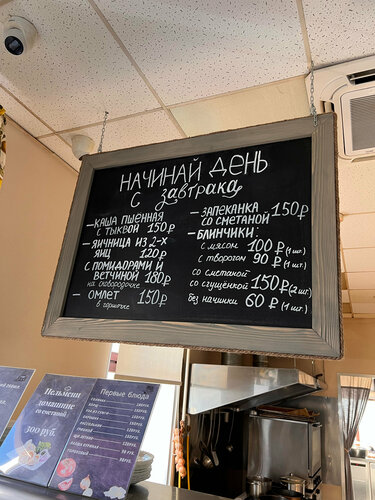 НАЧИНАЙ ДЕНЬ
С завтрака
– КАША ПШЕННАЯ
С ТЫКВОЙ 150₽
– ЯИЧНИЦА ИЗ 2-Х
ЯИЦ 120₽
С ПОМИДОРАМИ И
ВЕТЧИНОЙ 180₽
на сковородочке
– ОМЛЕТ 150₽
в горшочке
– ЗАПЕКАНКА 150₽
СО СМЕТАНОЙ
– БЛИНЧИКИ:
С МЯСОМ 100₽ (1 шт.)
С ТВОРОГОМ 90₽ (1 шт.)
СО СМЕТАНОЙ
СО СГУЩЁНКОЙ 150₽ (2 шт.)
БЕЗ НАЧИНКИ 60₽ (1 шт.)
Пельмени
домашние
со сметаной
300 руб.
Первые блюда